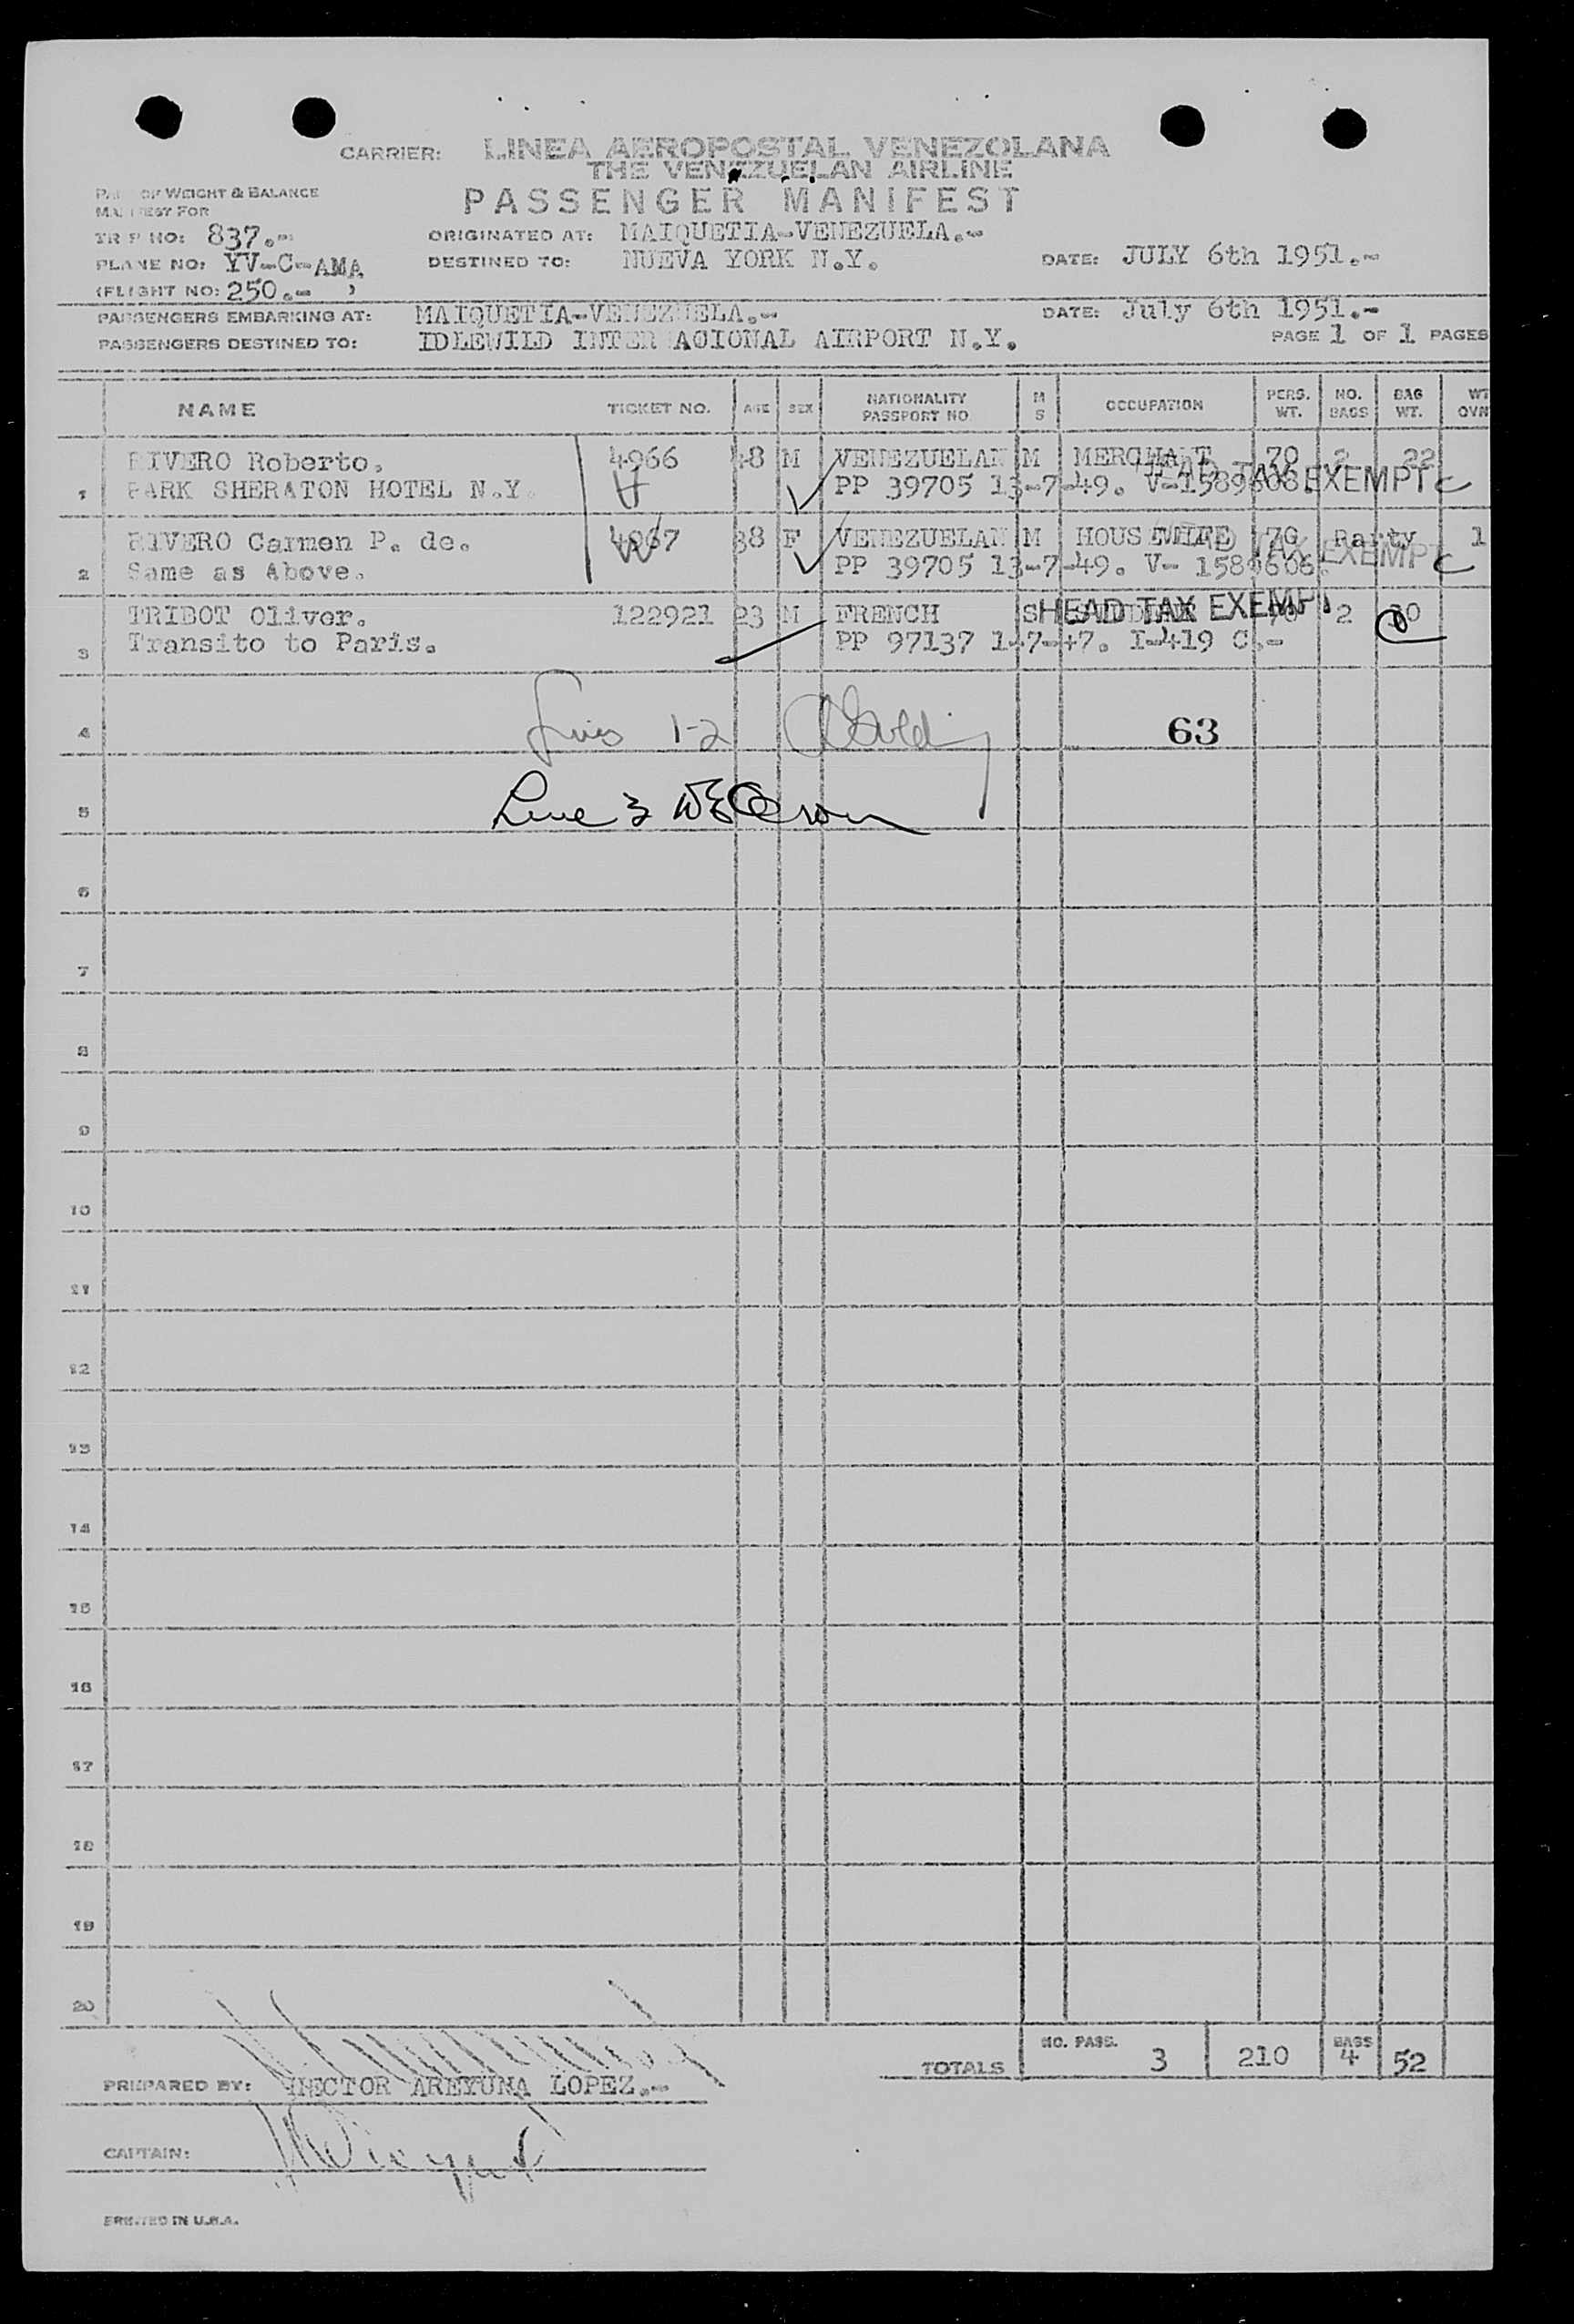 CARRIER: LINEA AEROPOSTAL VENEZOLANA
THE VENEZUELAN AIRLINE
PASSENGER MANIFEST
WEIGHT & BALANCE
FOR
TRIP NO: 837.-
PLANE NO: YV-C-AMA
(FLIGHT NO: 250.- )
ORIGINATED AT: MAIQUETIA-VENEZUELA.-
DESTINED TO: NUEVA YORK N.Y.
DATE: JULY 6th 1951.-
PASSENGERS EMBARKING AT: MAIQUETIA-VENEZUELA.- DATE: July 6th 1951.-
PASSENGERS DESTINED TO: IDLEWILD INTER ACIONAL AIRPORT N.Y. PAGE 1 OF 1 PAGES
NAME TICKET NO. AGE SEX NATIONALITY PASSPORT NO M S OCCUPATION PERS. WT. NO. BAGS BAG WT. WT
RIVERO Roberto. 4966 48 M VENEZUELAN M MERCHANT 70 2 22
1 PARK SHERATON HOTEL N.Y. PP 39705 13-7-49. HEAD TAX EXEMPT
RIVERO Carmen P. de. 4967 38 F VENEZUELAN M HOUSEWIFE 70 1
2 Same as Above. PP 39705 13-7-49. V- HEAD TAX EXEMPT
TRIBOT Oliver. 122921 23 M FRENCH S HEAD TAX EXEMPT 70 2 30
3 Transito to Paris. PP 97137 1-7-47. I-419 C.-
4 1-2 63
5 3
6
7
8
9
10
11
12
13
14
15
16
17
18
19
20
TOTALS NO. PASS. 3 210 BAGS 4 52
PREPARED BY: HECTOR AREYUNA LOPEZ.-
CAPTAIN:
PRINTED IN U.S.A.